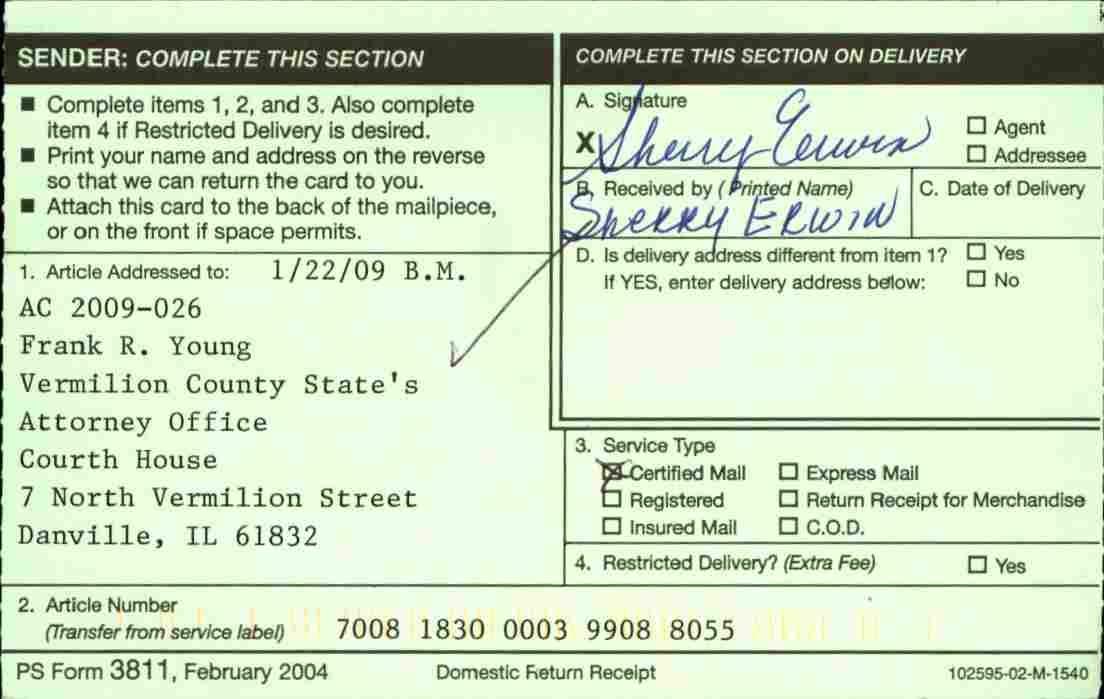 SENDER: COMPLETE THIS SECTION
■ Complete items 1, 2, and 3. Also complete
item 4 if Restricted Delivery is desired.
■ Print your name and address on the reverse
so that we can return the card to you.
■ Attach this card to the back of the mailpiece,
or on the front if space permits.
1. Article Addressed to: 1/22/09 B.M.
AC 2009-026
Frank R. Young
Vermilion County State's
Attorney Office
Courth House
7 North Vermilion Street
Danville, IL 61832
COMPLETE THIS SECTION ON DELIVERY
A. Signature
X Sherry Erwin
☐ Agent
☐ Addressee
B. Received by (Printed Name)
Sherry ERWIN
C. Date of Delivery
D. Is delivery address different from item 1? ☐ Yes
If YES, enter delivery address below: ☐ No
3. Service Type
☒ Certified Mail ☐ Express Mail
☐ Registered ☐ Return Receipt for Merchandise
☐ Insured Mail ☐ C.O.D.
4. Restricted Delivery? (Extra Fee) ☐ Yes
2. Article Number
(Transfer from service label) 7008 1830 0003 9908 8055
PS Form 3811, February 2004 Domestic Return Receipt 102595-02-M-1540